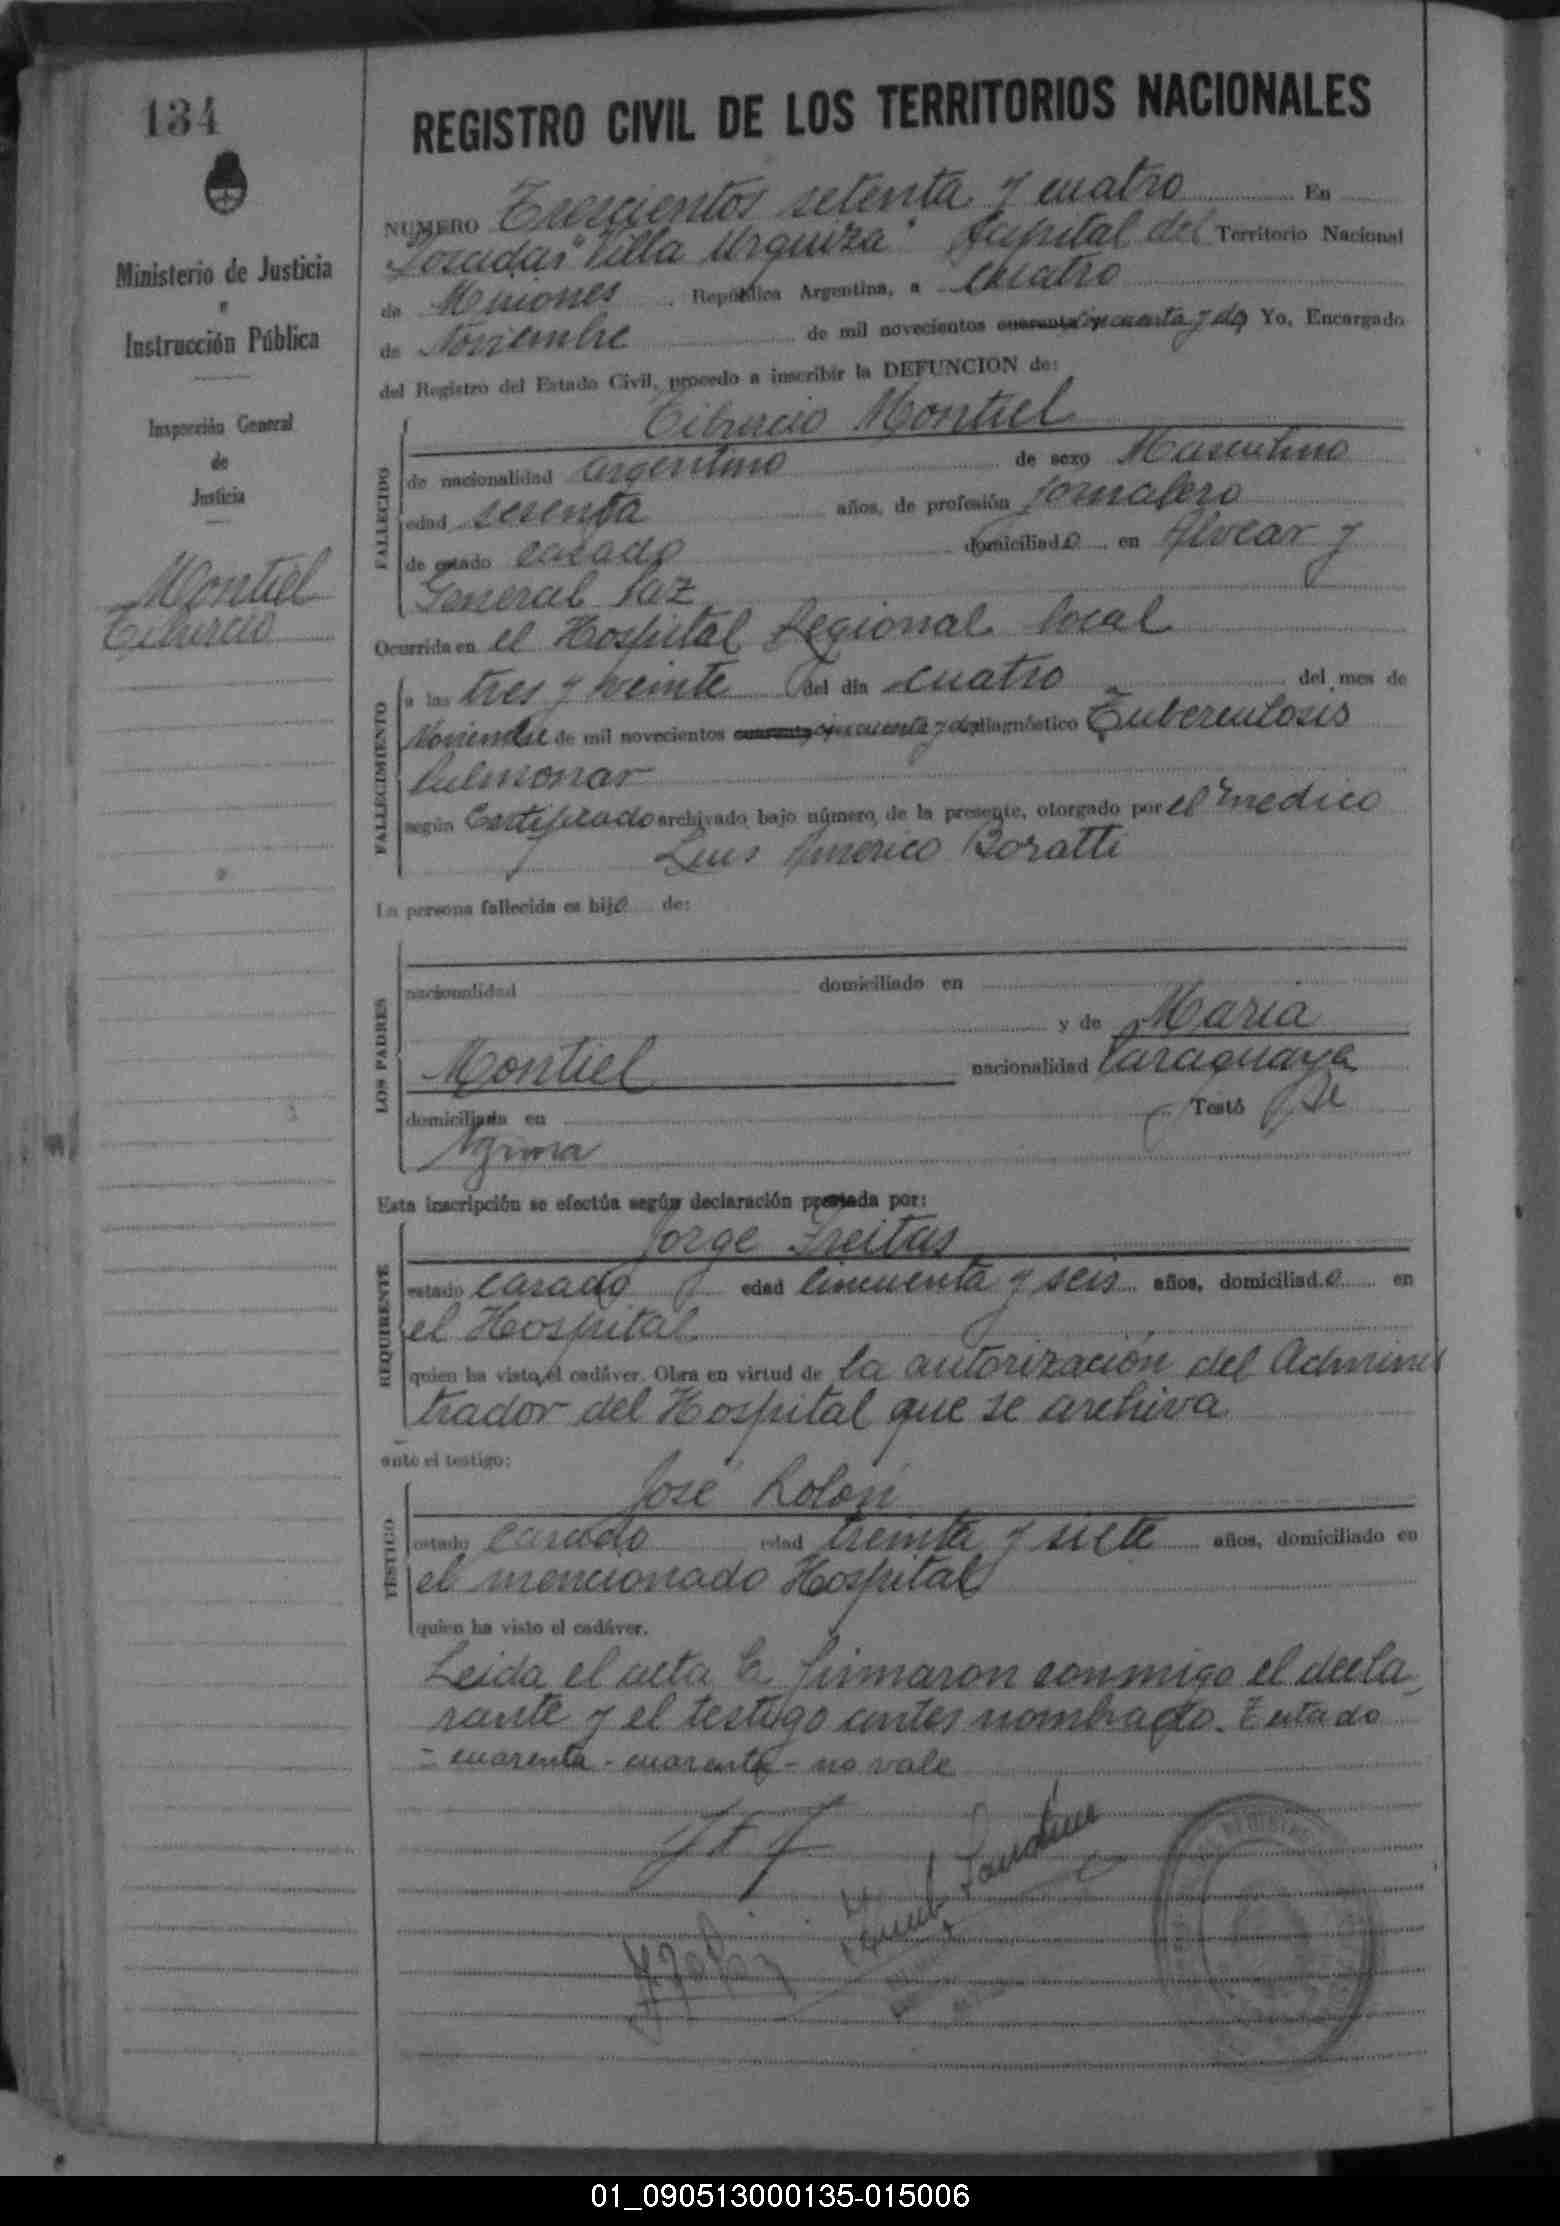 134
REGISTRO CIVIL DE LOS TERRITORIOS NACIONALES
Ministerio de Justicia
e
Instrucción Pública
Inspección General
de
Justicia
Montiel
Tiburcio
NUMERO Trescientos setenta y cuatro En
Posadas "Villa Urquiza" Capital del Territorio Nacional
de Misiones República Argentina, a cuatro
de Noviembre de mil novecientos cuarenta cincuenta y dos Yo, Encargado
del Registro del Estado Civil, procedo a inscribir la DEFUNCION de:
Tiburcio Montiel
FALLECIDO
de nacionalidad argentino de sexo Masculino
edad sesenta años, de profesión jornalero
de estado casado domiciliado en Alvear y
General Paz
Ocurrida en el Hospital Regional local
FALLECIMIENTO
a las tres y veinte del día cuatro del mes de
Noviembre de mil novecientos cuarenta cincuenta y dos diagnóstico Tuberculosis
Pulmonar
según Certificado archivado bajo número de la presente, otorgado por el médico
Luis Americo Boratti
La persona fallecida es hijo de:
LOS PADRES
nacionalidad domiciliado en
y de María
Montiel nacionalidad Paraguaya
domiciliada en Testó Se
Ignora
Esta inscripción se efectúa según declaración prestada por:
REQUIRENTE
Jorge Freitas
estado casado edad cincuenta y seis años, domiciliado en
el Hospital
quien ha visto el cadáver. Obra en virtud de la autorización del Adminis
trador del Hospital que se archiva
ante el testigo:
TESTIGO
José Rolón
estado casado edad treinta y siete años, domiciliado en
el mencionado Hospital
quien ha visto el cadáver.
Leida el acta la firmaron conmigo el decla
rante y el testigo antes nombrado. Testado
- cuarenta - cuarenta - no vale
01_090513000135-015006